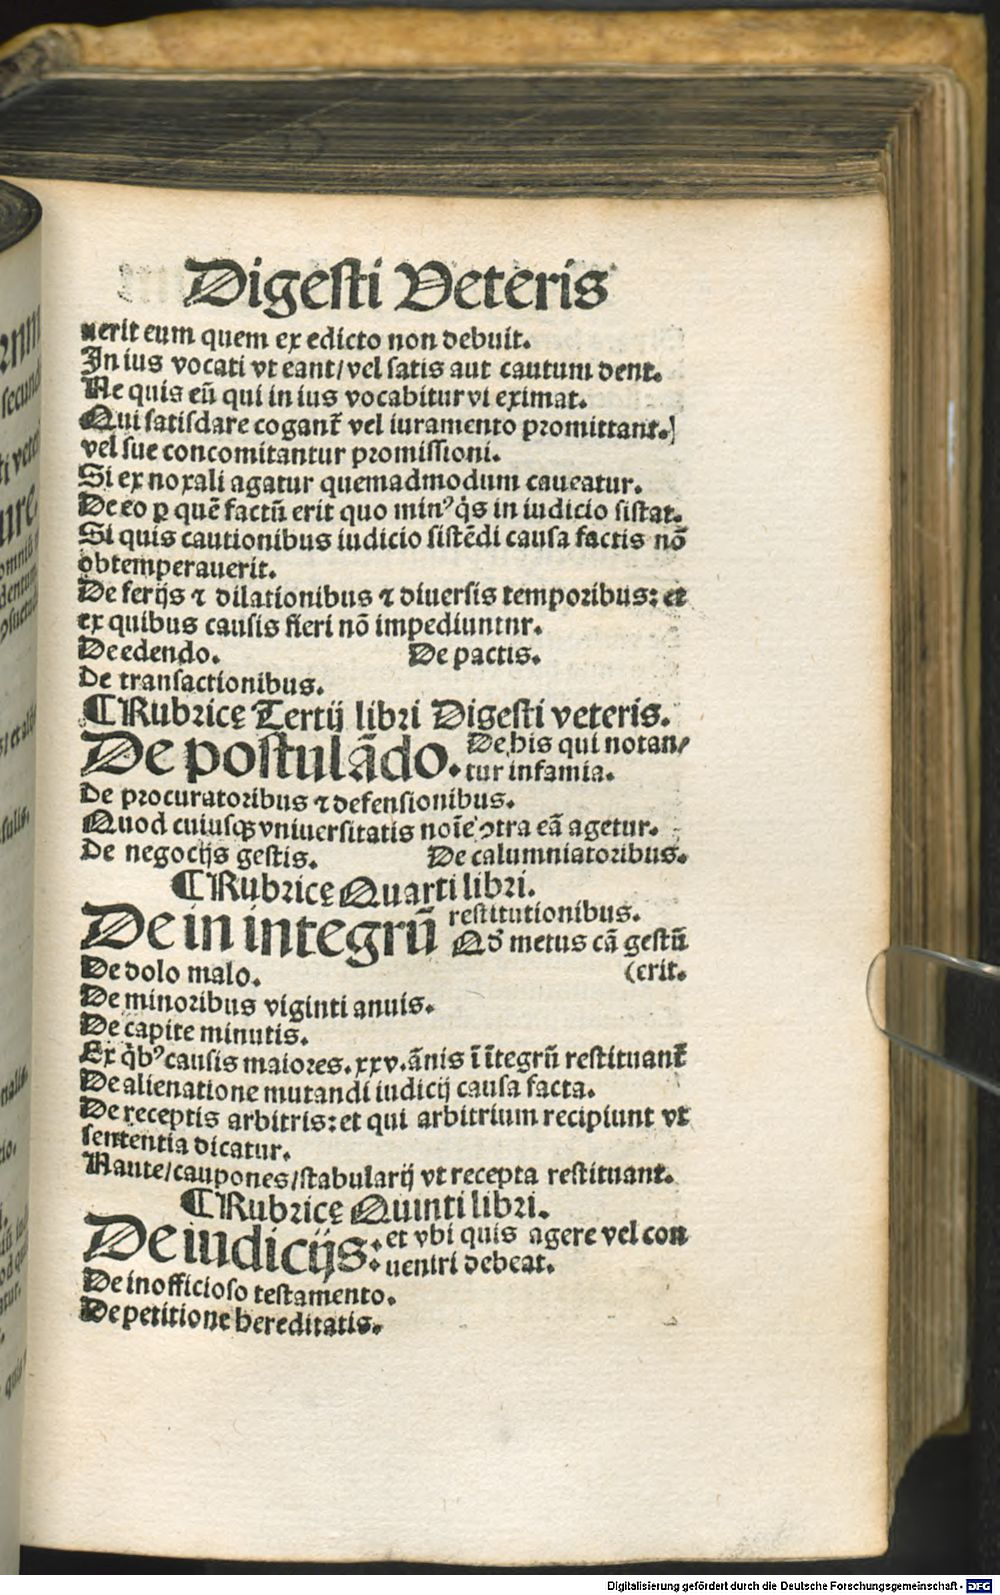 Digesti Veteris
uerit eum quem ex edicto non debuit.
In ius vocati vt eant/vel satis aut cautum dent.
Ne quis eū qui in ius vocabitur vi eximat.
Qui satisdare cogant᷑ vel iuramento promittant.)
vel sue concomitantur promissioni.
Si ex noxali agatur quemadmodum caueatur.
De eo ꝑ quē factū erit quo minꝰ q̇s in iudicio sistat.
Si quis cautionibus iudicio sistēdi causa factis nō
obtemperauerit.
De ferijs ⁊ dilationibus ⁊ diuersis temporibus: et
ex quibus causis fieri nō impediuntnr.
De edendo. De pactis.
De transactionibus.
¶ Rubrice̜ Tertij libri Digesti veteris.
De postulādo. De his qui notan/
tur infamia.
De procuratoribus ⁊ defensionibus.
Quod cuiusqꝫ vniuersitatis noīe ↄtra eā agetur.
De negocijs gestis. De calumniatoribus.
¶ Rubrice̜ Quarti libri.
De in integrū restitutionibus.
Qđ metus cā gestū
De dolo malo. (erit.
De minoribus viginti anuis.
De capite minutis.
Ex q̇bꝰ causis maiores.xxv.ānis ī ītegrū restituant᷑
De alienatione mutandi iudicij causa facta.
De receptis arbitris: et qui arbitrium recipiunt vt
sententia dicatur.
Naute/caupones/stabularij vt recepta restituant.
¶ Rubrice̜ Quinti libri.
De iudicijs: et vbi quis agere vel con
ueniri debeat.
De inofficioso testamento.
De petitione hereditatis.
Digitalisierung gefördert durch die Deutsche Forschungsgemeinschaft - DFG